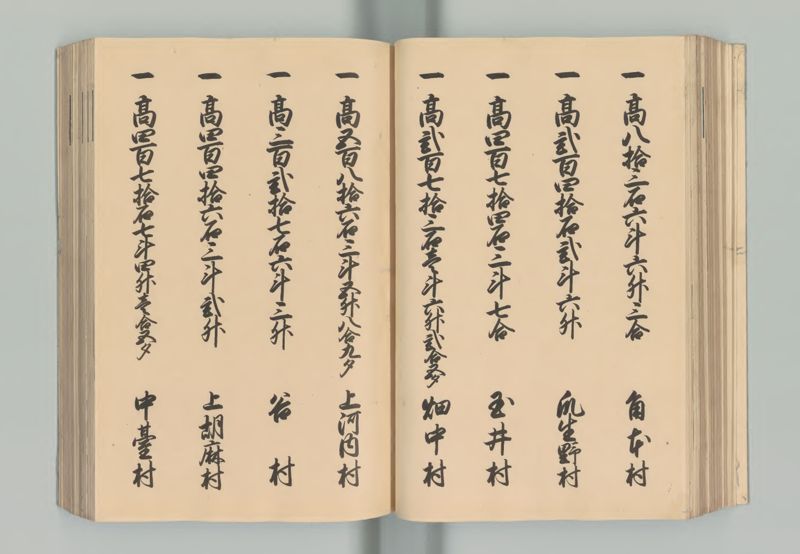 一 高八拾三石六斗六升三合 角本村
一 高弐百四拾石弐斗六升 瓜生野村
一 高四百七拾四石三斗七合 玉井村
一 高弐百七拾三石壱斗六升弐合五夕 畑中村
一 高五百八拾六石三斗五升八合九夕 上河内村
一 高三百弐拾七石六斗三升 谷村
一 高四百四拾六石三斗弐升 上胡麻村
一 高四百七拾石七斗四升壱合五夕 中臺村